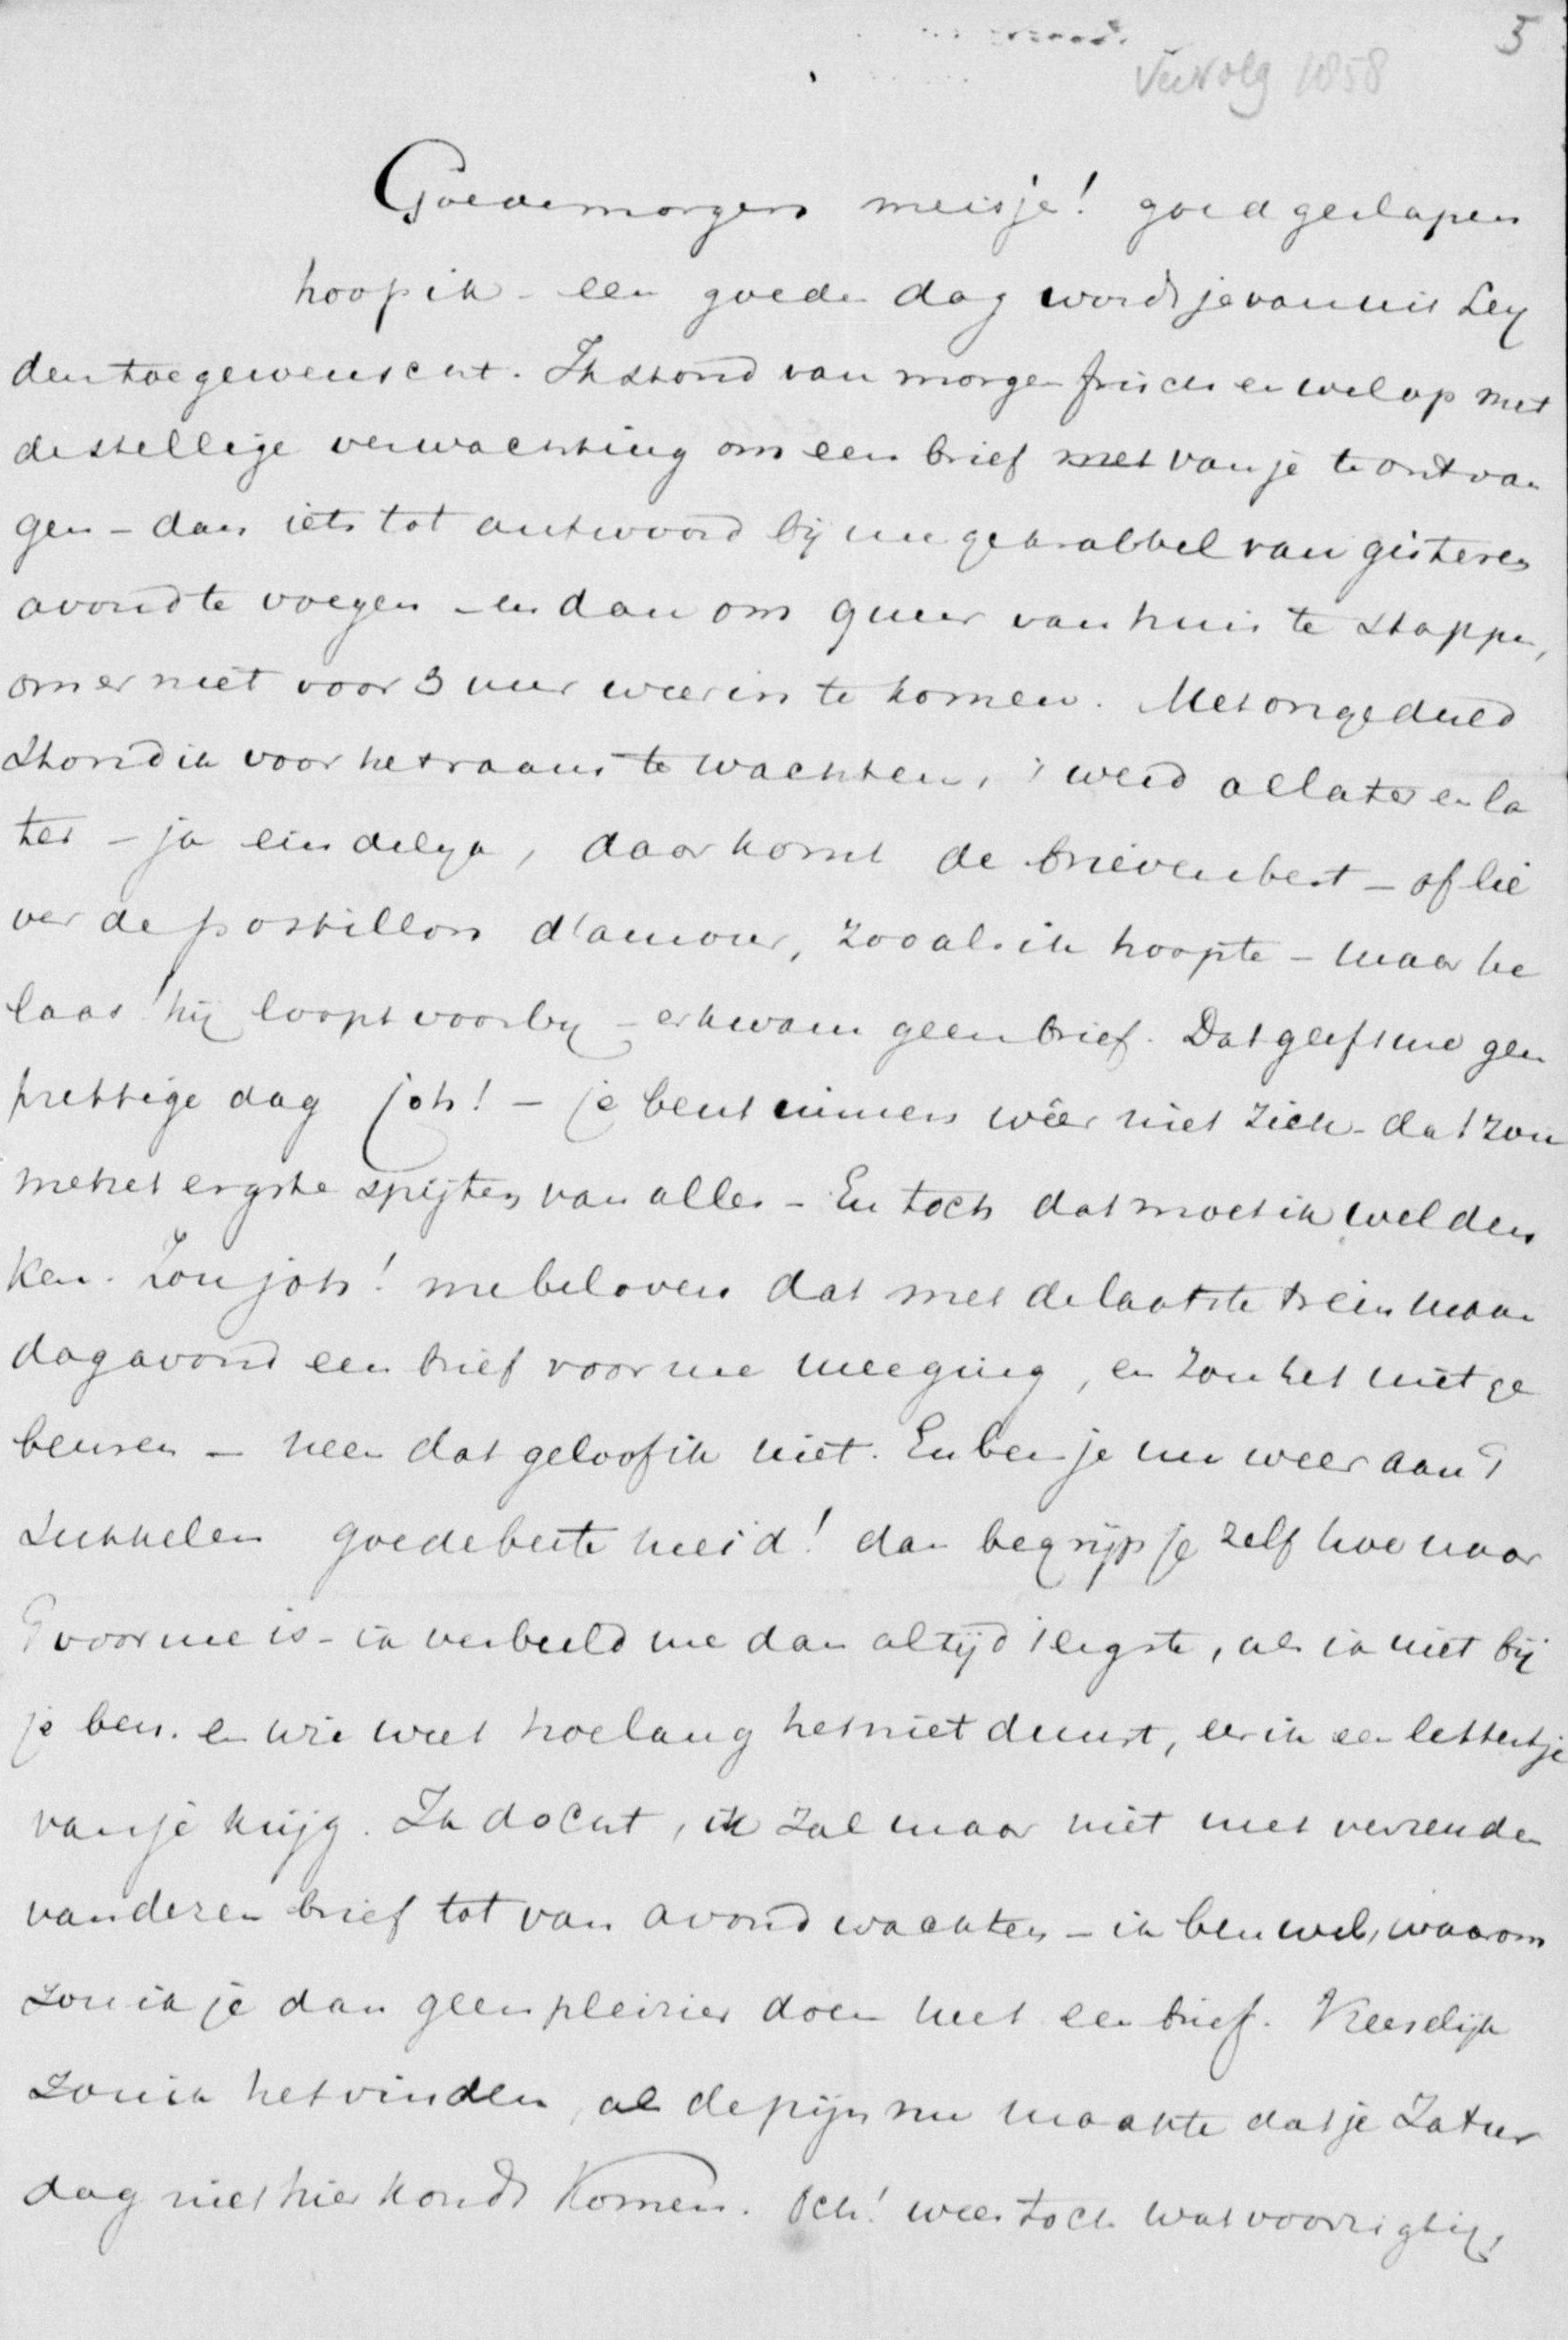 5
Vervolg 1858
Goedemorgen meisje! goed geslapen
hoop ik - een goede dag wordt je van uit Ley
den toegewenscht. Ik stond van morgen frisch en wel op met
de stellige verwachting om een brief met van je te ontvan
gen - dan iets tot antwoord bij me gekrabbel van gisteren
avond te voegen - en dan om 9 uur van huis te stappen,
om er niet voor 3 uur weer in te komen. Met ongeduld
stond ik voor het raam te wachten, 't werd al later en la
ter - ja eindelyk, daar komt de brievenbest - of lie
ver de postillon d'amour, zooals ik hoopte - maar he
laas! hij loopt voorby - er kwam geen brief. Dat geeft me geen
prettige dag joh! - je bent immers wéér niet ziek - dat zou
me het ergste spijten van alles - En toch dat moet ik wel den
ken. Zou joh! me beloven dat met de laatste trein maan
dagavond een brief voor me meeging, en zou het niet ge
beuren - neen dat geloof ik niet. En ben je nu weer aan 't
sukkelen goede beste meid! dan begrijp je zelf hoe naar
't voor me is - ik verbeeld me dan altijd 't ergste, als ik niet bij
je ben. en wie weet hoelang het niet duurt, eer ik een lettertje
van je krijg. Ik dacht, ik zal maar niet met verzenden
van dezen brief tot van avond wachten - ik ben wel, waarom
zou ik je dan geen pleizier doen met een brief. Vreeselijk
zou ik het vinden, als de pijn nu maakte dat je Zatur
dag niet hier kondt komen. Och! wees toch wat voorzigtig,